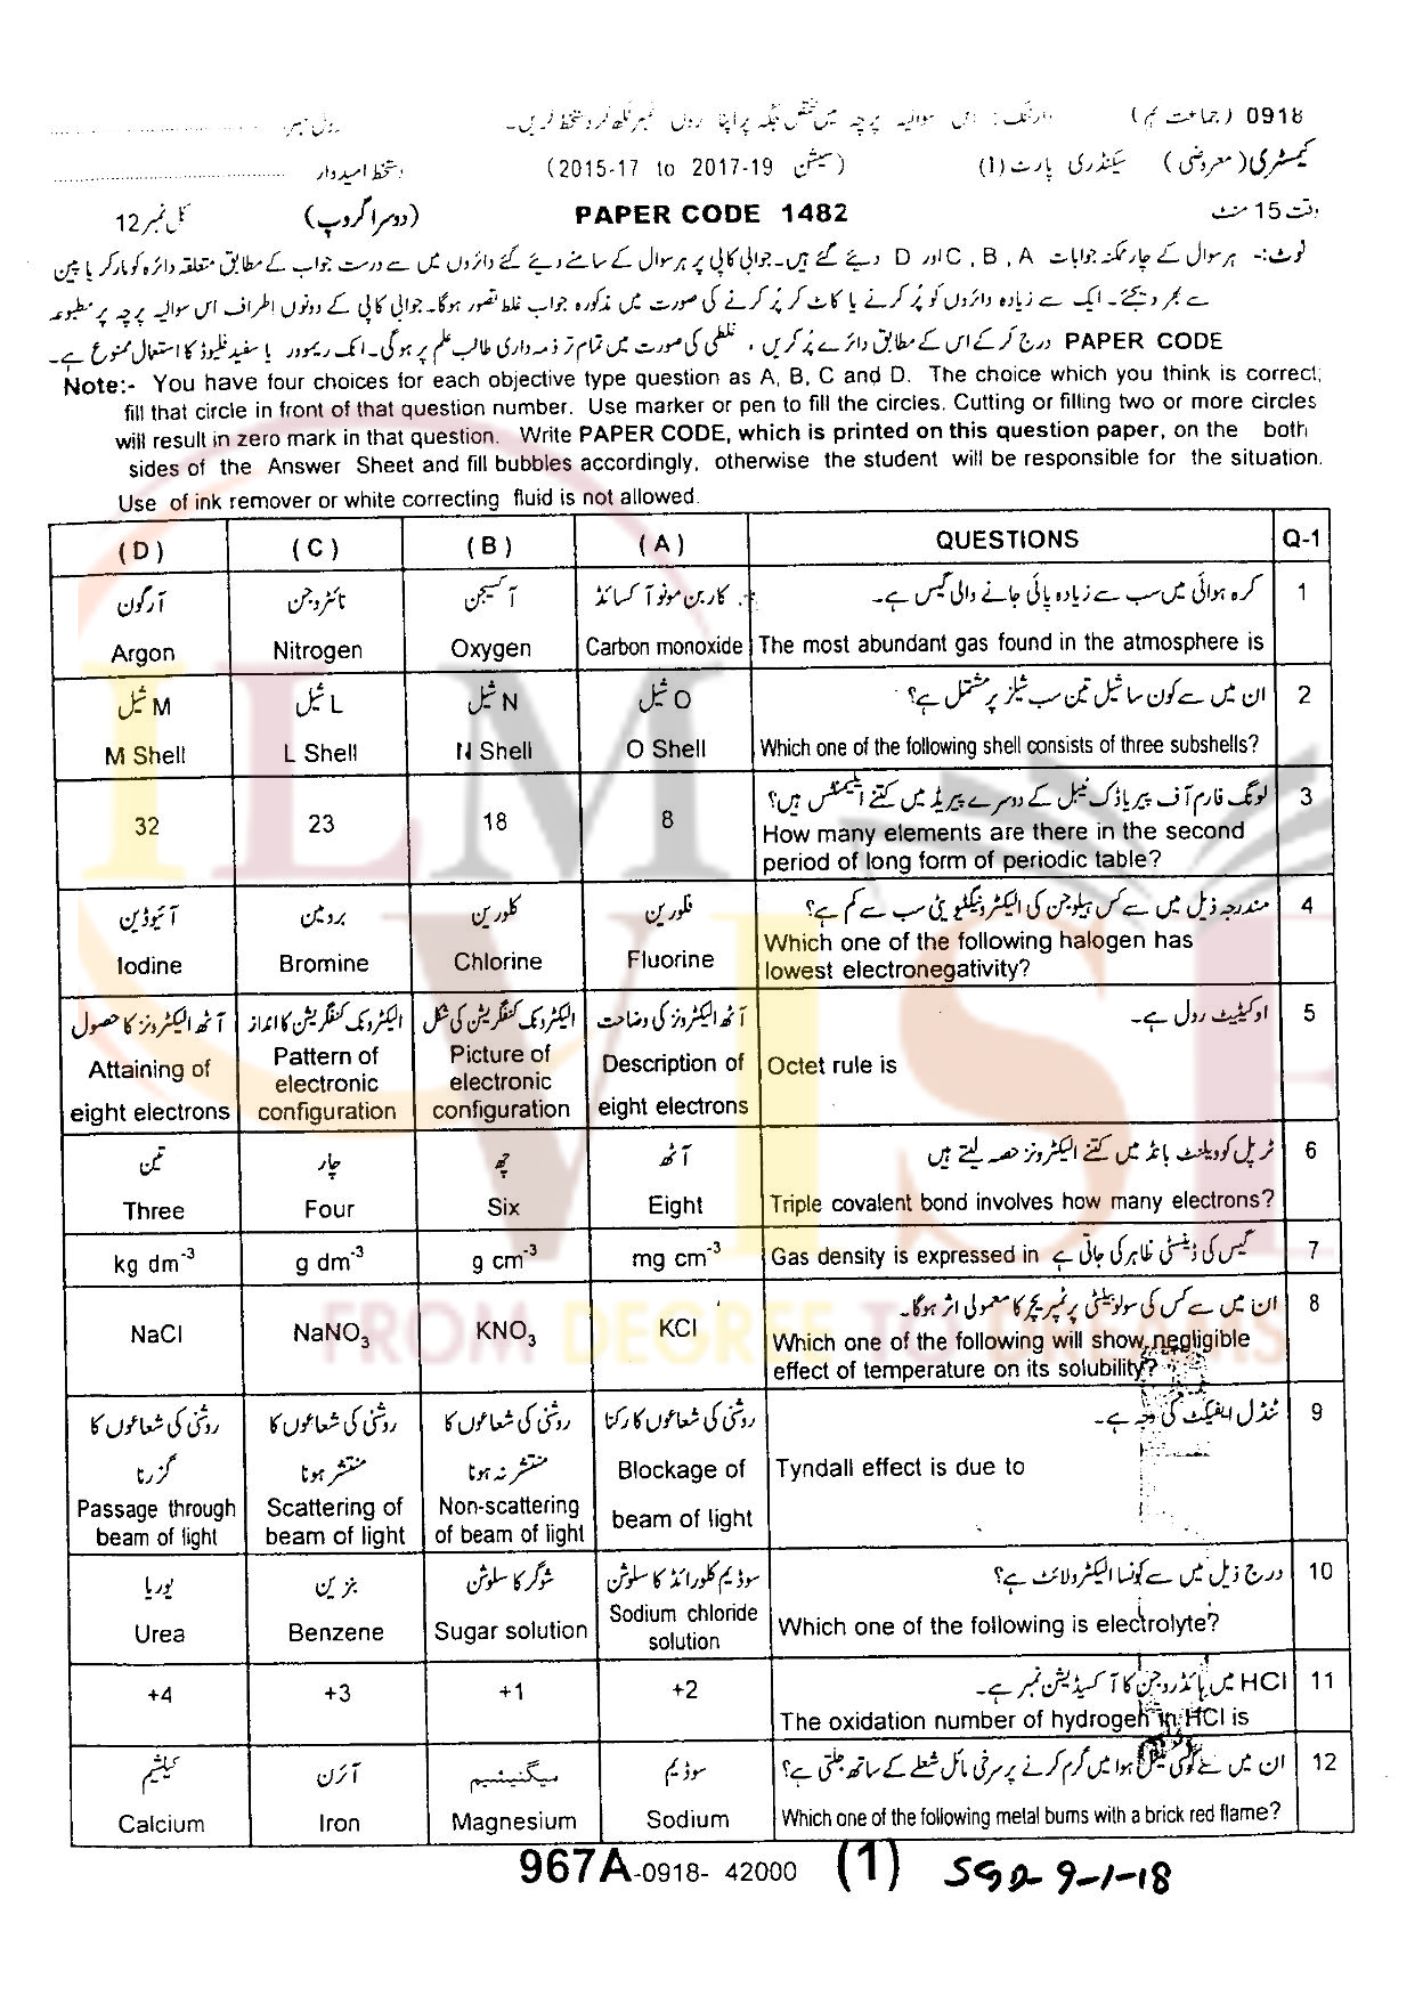 0918 (جماعت نہم) وارننگ: اس سوالیہ پرچہ میں مختص جگہ پر اپنا رول نمبر لکھ کر دستخط کریں۔ رول نمبر
کیمسٹری (معروضی) سیکنڈری پارٹ (I) (سیشن 2015-17 to 2017-19) دستخط امیدوار
وقت 15 منٹ PAPER CODE 1482 (دوسرا گروپ) کل نمبر 12
نوٹ:- ہر سوال کے چار ممکنہ جوابات A , B , C اور D دیئے گئے ہیں۔ جوابی کاپی پر ہر سوال کے سامنے دیئے گئے دائروں میں سے درست جواب کے مطابق متعلقہ دائرہ کو مارکر یا پین
سے بھر دیجئے۔ ایک سے زیادہ دائروں کو پُر کرنے یا کاٹ کر پُر کرنے کی صورت میں مذکورہ جواب غلط تصور ہوگا۔ جوابی کاپی کے دونوں اطراف اس سوالیہ پرچہ پر مطبوعہ
PAPER CODE درج کر کے اس کے مطابق دائرے پُر کریں ، غلطی کی صورت میں تمام تر ذمہ داری طالب علم پر ہوگی۔ انک ریموور یا سفید فلیوڈ کا استعمال ممنوع ہے۔
Note:- You have four choices for each objective type question as A, B, C and D. The choice which you think is correct;
fill that circle in front of that question number. Use marker or pen to fill the circles. Cutting or filling two or more circles
will result in zero mark in that question. Write PAPER CODE, which is printed on this question paper, on the both
sides of the Answer Sheet and fill bubbles accordingly, otherwise the student will be responsible for the situation.
Use of ink remover or white correcting fluid is not allowed.
(D) (C) (B) (A) QUESTIONS Q-1
آرگون نائٹروجن آکسیجن کاربن مونو آکسائڈ کرہ ہوائی میں سب سے زیادہ پائی جانے والی گیس ہے۔ 1
Argon Nitrogen Oxygen Carbon monoxide The most abundant gas found in the atmosphere is
M شیل L شیل N شیل O شیل ان میں سے کون سا شیل تین سب شیلز پر مشتمل ہے؟ 2
M Shell L Shell N Shell O Shell Which one of the following shell consists of three subshells?
32 23 18 8 لونگ فارم آف پیریاڈک ٹیبل کے دوسرے پیریڈ میں کتنے ایلیمنٹس ہیں؟ 3
How many elements are there in the second
period of long form of periodic table?
آئیوڈین برومین کلورین فلورین مندرجہ ذیل میں سے کس ہیلوجن کی الیکٹرونیگٹیویٹی سب سے کم ہے؟ 4
Iodine Bromine Chlorine Fluorine Which one of the following halogen has
lowest electronegativity?
آٹھ الیکٹرونز کا حصول الیکٹرونک کنفگریشن کا انداز الیکٹرونک کنفگریشن کی شکل آٹھ الیکٹرونز کی وضاحت اوکٹیٹ رول ہے۔ 5
Attaining of Pattern of Picture of Description of Octet rule is
electronic electronic
eight electrons configuration configuration eight electrons
تین چار چھ آٹھ ٹرپل کوویلنٹ بانڈ میں کتنے الیکٹرونز حصہ لیتے ہیں 6
Three Four Six Eight Triple covalent bond involves how many electrons?
kg dm⁻³ g dm⁻³ g cm⁻³ mg cm⁻³ Gas density is expressed in گیس کی ڈینسٹی ظاہر کی جاتی ہے 7
NaCl NaNO₃ KNO₃ KCl ان میں سے کس کی سولوبیلٹی پر ٹمپریچر کا معمولی اثر ہوگا۔ 8
Which one of the following will show negligible
effect of temperature on its solubility?
روشنی کی شعاعوں کا روشنی کی شعاعوں کا روشنی کی شعاعوں کا روشنی کی شعاعوں کا رکنا ٹنڈل ایفیکٹ کی وجہ ہے۔ 9
گزرنا منتشر ہونا منتشر نہ ہونا Blockage of Tyndall effect is due to
Passage through Scattering of Non-scattering beam of light
beam of light beam of light of beam of light
یوریا بنزین شوگر کا سلوشن سوڈیم کلورائڈ کا سلوشن درج ذیل میں سے کونسا الیکٹرولائٹ ہے؟ 10
Urea Benzene Sugar solution Sodium chloride Which one of the following is electrolyte?
solution
+4 +3 +1 +2 HCl میں ہائڈروجن کا آکسیڈیشن نمبر ہے۔ 11
The oxidation number of hydrogen in HCl is
کیلشیم آئرن میگنیشیم سوڈیم ان میں سے ہوا میں گرم کرنے پر سرخی مائل شعلے کے ساتھ جلتی ہے؟ 12
Calcium Iron Magnesium Sodium Which one of the following metal burns with a brick red flame?
967A-0918- 42000 (1) SGD-9-1-18
ILM
VISION
FROM DEGREE TO DREAMS